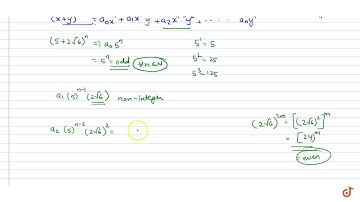 (x+y) = a₀x + a₁x y + a₂x y + ..... aₙy
(5+2√6)ⁿ => a₀ 5ⁿ
= 5ⁿ = odd ∀n∈N
5¹ = 5
5² = 25
5³ = 125
a₁ (5)ⁿ⁻¹ (2√6) non-integer
a₂ (5)ⁿ⁻² (2√6)² =
(2√6)²ᵐ = [(2√6)²]ᵐ
= [24]ᵐ
= even